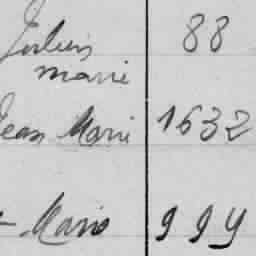 Julien 88
marie
Jean Marie 1632
- Marie 994